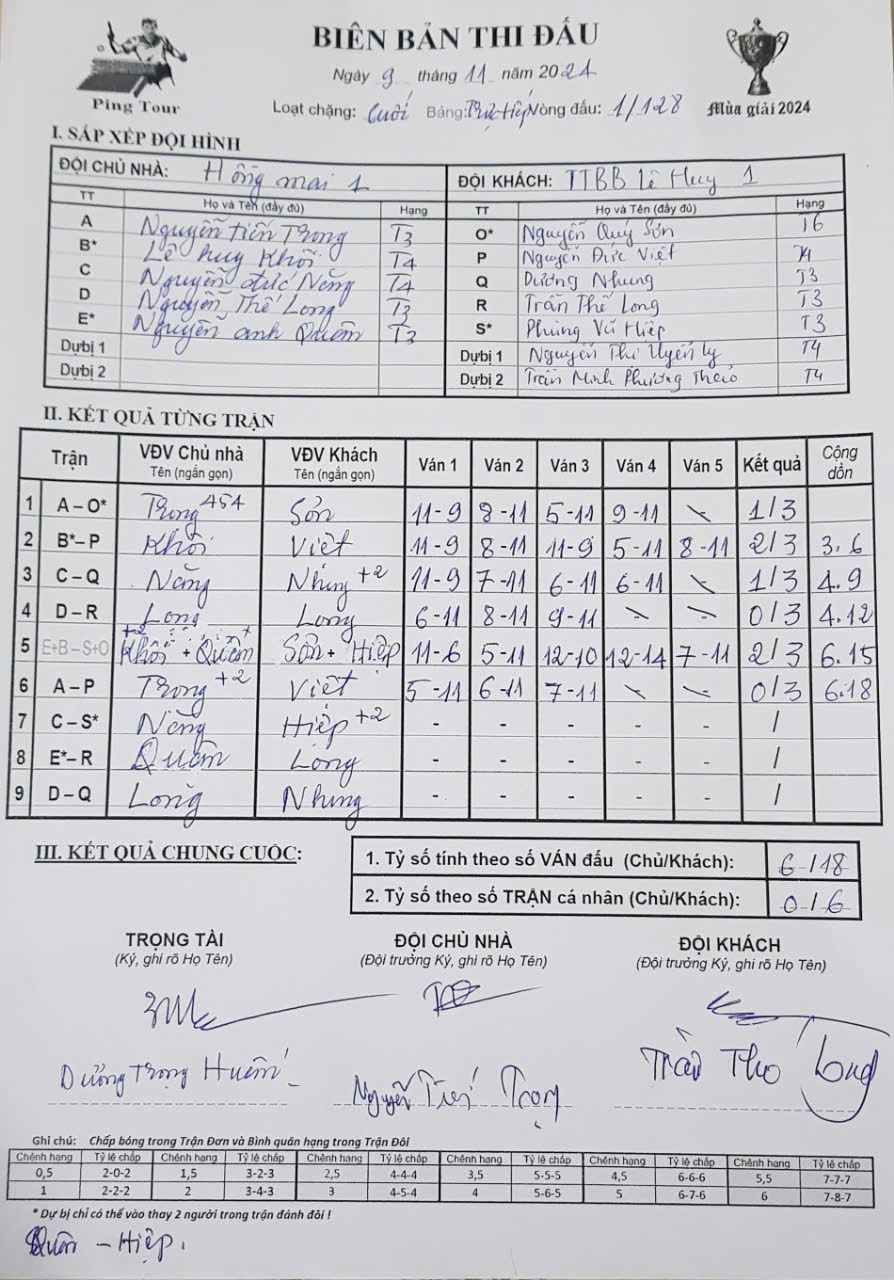 BIÊN BẢN THI ĐẤU
Ping Tour
Ngày 9 tháng 11 năm 2024
Loạt chặng: Cuối Bảng: Trực tiếp Vòng đấu: 1/128
Mùa giải 2024
I. SẮP XẾP ĐỘI HÌNH
ĐỘI CHỦ NHÀ: Hồng mai 1 ĐỘI KHÁCH: TTBB Lê Huy 1
TT Họ và Tên (đầy đủ) Hạng TT Họ và Tên (đầy đủ) Hạng
A Nguyễn tiến Trong T3 O* Nguyễn Quý Sơn T6
B* Lê huy Khôi T4 P Nguyễn Đức Việt T4
C Nguyễn đức Năng T4 Q Dương Nhung T3
D Nguyễn Thế Long T3 R Trần Thế Long T3
E* Nguyễn anh Quân T3 S* Phùng Vũ Hiệp T3
Dự bị 1 Dự bị 1 Nguyễn Thị Uyển ly T4
Dự bị 2 Dự bị 2 Trần Minh Phương Thảo T4
II. KẾT QUẢ TỪNG TRẬN
Trận VĐV Chủ nhà Tên (ngắn gọn) VĐV Khách Tên (ngắn gọn) Ván 1 Ván 2 Ván 3 Ván 4 Ván 5 Kết quả Cộng dồn
1 A – O* Trong 454 Sơn 11-9 8-11 5-11 9-11 1/3
2 B* – P Khôi Việt 11-9 8-11 11-9 5-11 8-11 2/3 3.6
3 C – Q Năng Nhung +2 11-9 7-11 6-11 6-11 1/3 4.9
4 D – R Long Long 6-11 8-11 9-11 - 0/3 4.12
5 E+B – S+O +2 Khôi + Quân Sơn + Hiệp 11-6 5-11 12-10 12-14 7-11 2/3 6.15
6 A – P Trong +2 Việt 5-11 6-11 7-11 - 0/3 6.18
7 C – S* Năng Hiệp +2 - - - - - /
8 E* – R Quân Long - - - - - /
9 D – Q Long Nhung - - - - - /
III. KẾT QUẢ CHUNG CUỘC:
1. Tỷ số tính theo số VÁN đấu (Chủ/Khách): 6/18
2. Tỷ số theo số TRẬN cá nhân (Chủ/Khách): 0/6
TRỌNG TÀI ĐỘI CHỦ NHÀ ĐỘI KHÁCH
(Ký, ghi rõ Họ Tên) (Đội trưởng Ký, ghi rõ Họ Tên) (Đội trưởng Ký, ghi rõ Họ Tên)
Dương Trọng Huấn Nguyễn Tiến Trọng Trần Thế Long
Ghi chú: Chấp bóng trong Trận Đơn và Bình quân hạng trong Trận Đôi
Chênh hạng Tỷ lệ chấp Chênh hạng Tỷ lệ chấp Chênh hạng Tỷ lệ chấp Chênh hạng Tỷ lệ chấp Chênh hạng Tỷ lệ chấp Chênh hạng Tỷ lệ chấp
0,5 2-0-2 1,5 3-2-3 2,5 4-4-4 3,5 5-5-5 4,5 6-6-6 5,5 7-7-7
1 2-2-2 2 3-4-3 3 4-5-4 4 5-6-5 5 6-7-6 6 7-8-7
* Dự bị chỉ có thể vào thay 2 người trong trận đánh đôi !
Quân - Hiệp.